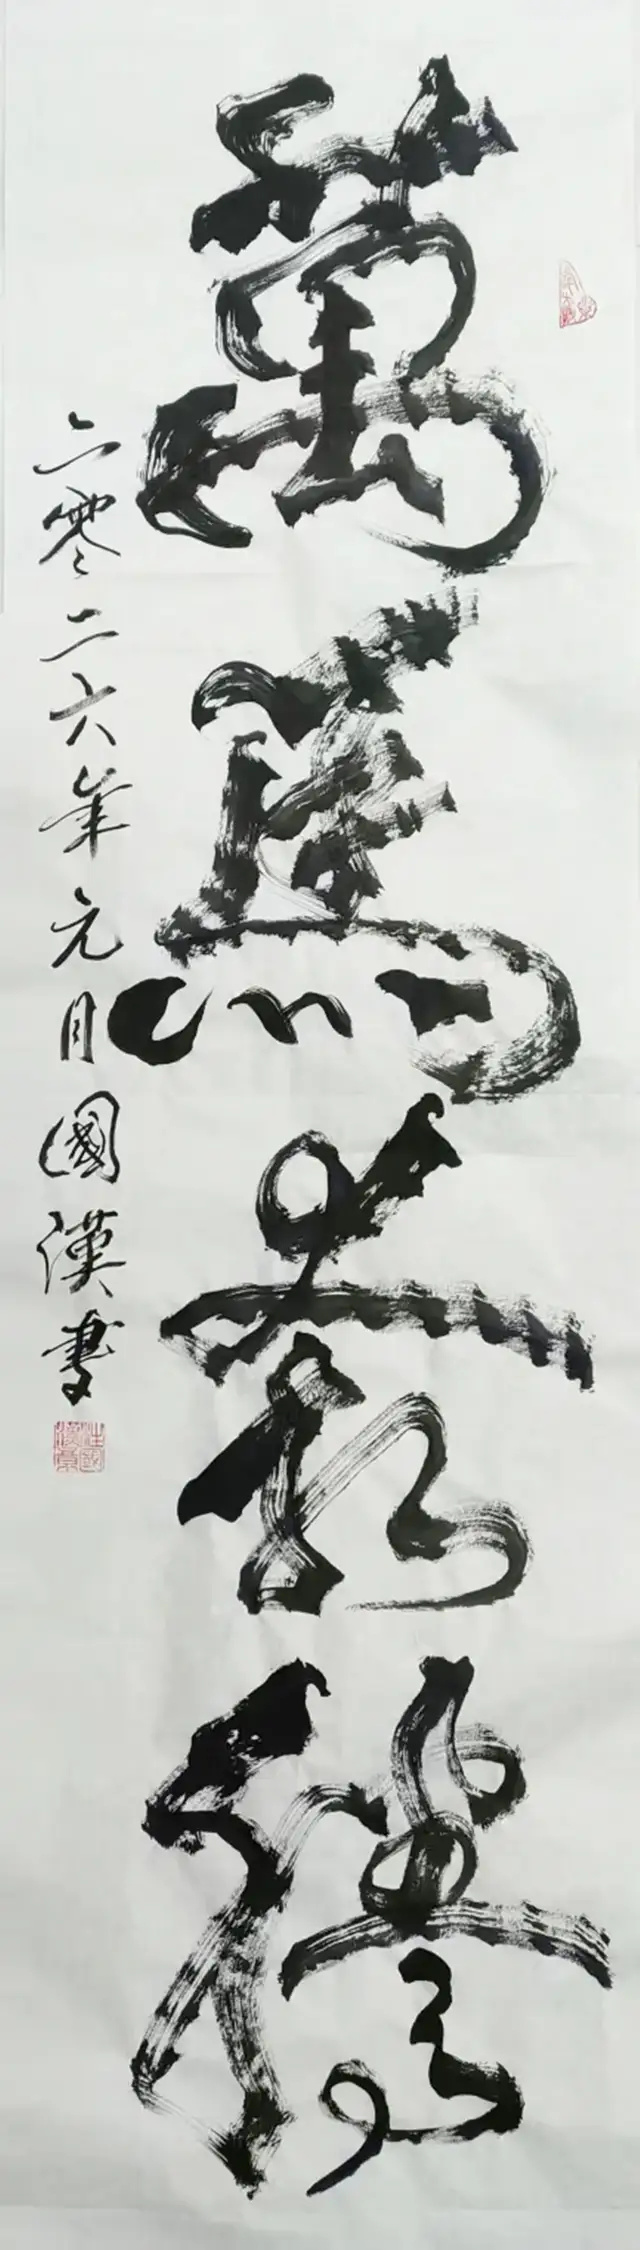 萬馬奔騰
二零二六年元月國漢書